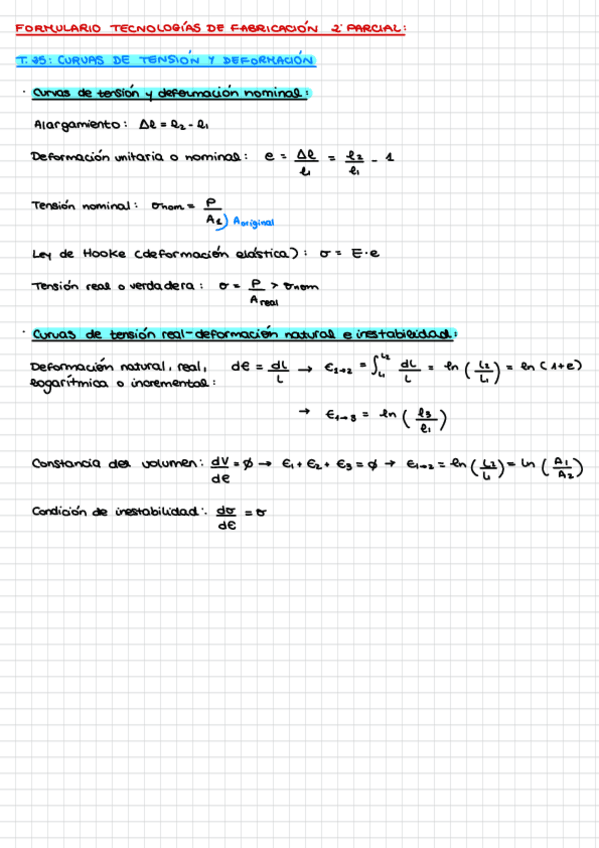 FORMULARIO TECNOLOGÍAS DE FABRICACIÓN 2º PARCIAL:
T.25: CURVAS DE TENSIÓN Y DEFORMACIÓN
· Curvas de tensión y deformación nominal:
Alargamiento: Δl = l₂ - l₁
Deformación unitaria o nominal: e = Δl/l₁ = l₂/l₁ - 1
Tensión nominal: σnom = P/A₁) Aoriginal
Ley de Hooke (deformación elástica): σ = E·e
Tensión real o verdadera: σ = P/Areal > σnom
· Curvas de tensión real-deformación natural e inestabilidad:
Deformación natural, real, dϵ = dL/L → ϵ₁→₂ = ∫_{L₁}^{L₂} dL/L = ln (L₂/L₁) = ln (1+e)
logarítmica o incremental:
→ ϵ₁→₃ = ln (l₃/l₁)
Constancia del volumen: dV/dϵ = ø → ϵ₁ + ϵ₂ + ϵ₃ = ø → ϵ₁→₂ = ln (L₂/L₁) = ln (A₁/A₂)
Condición de inestabilidad: dσ/dϵ = σ